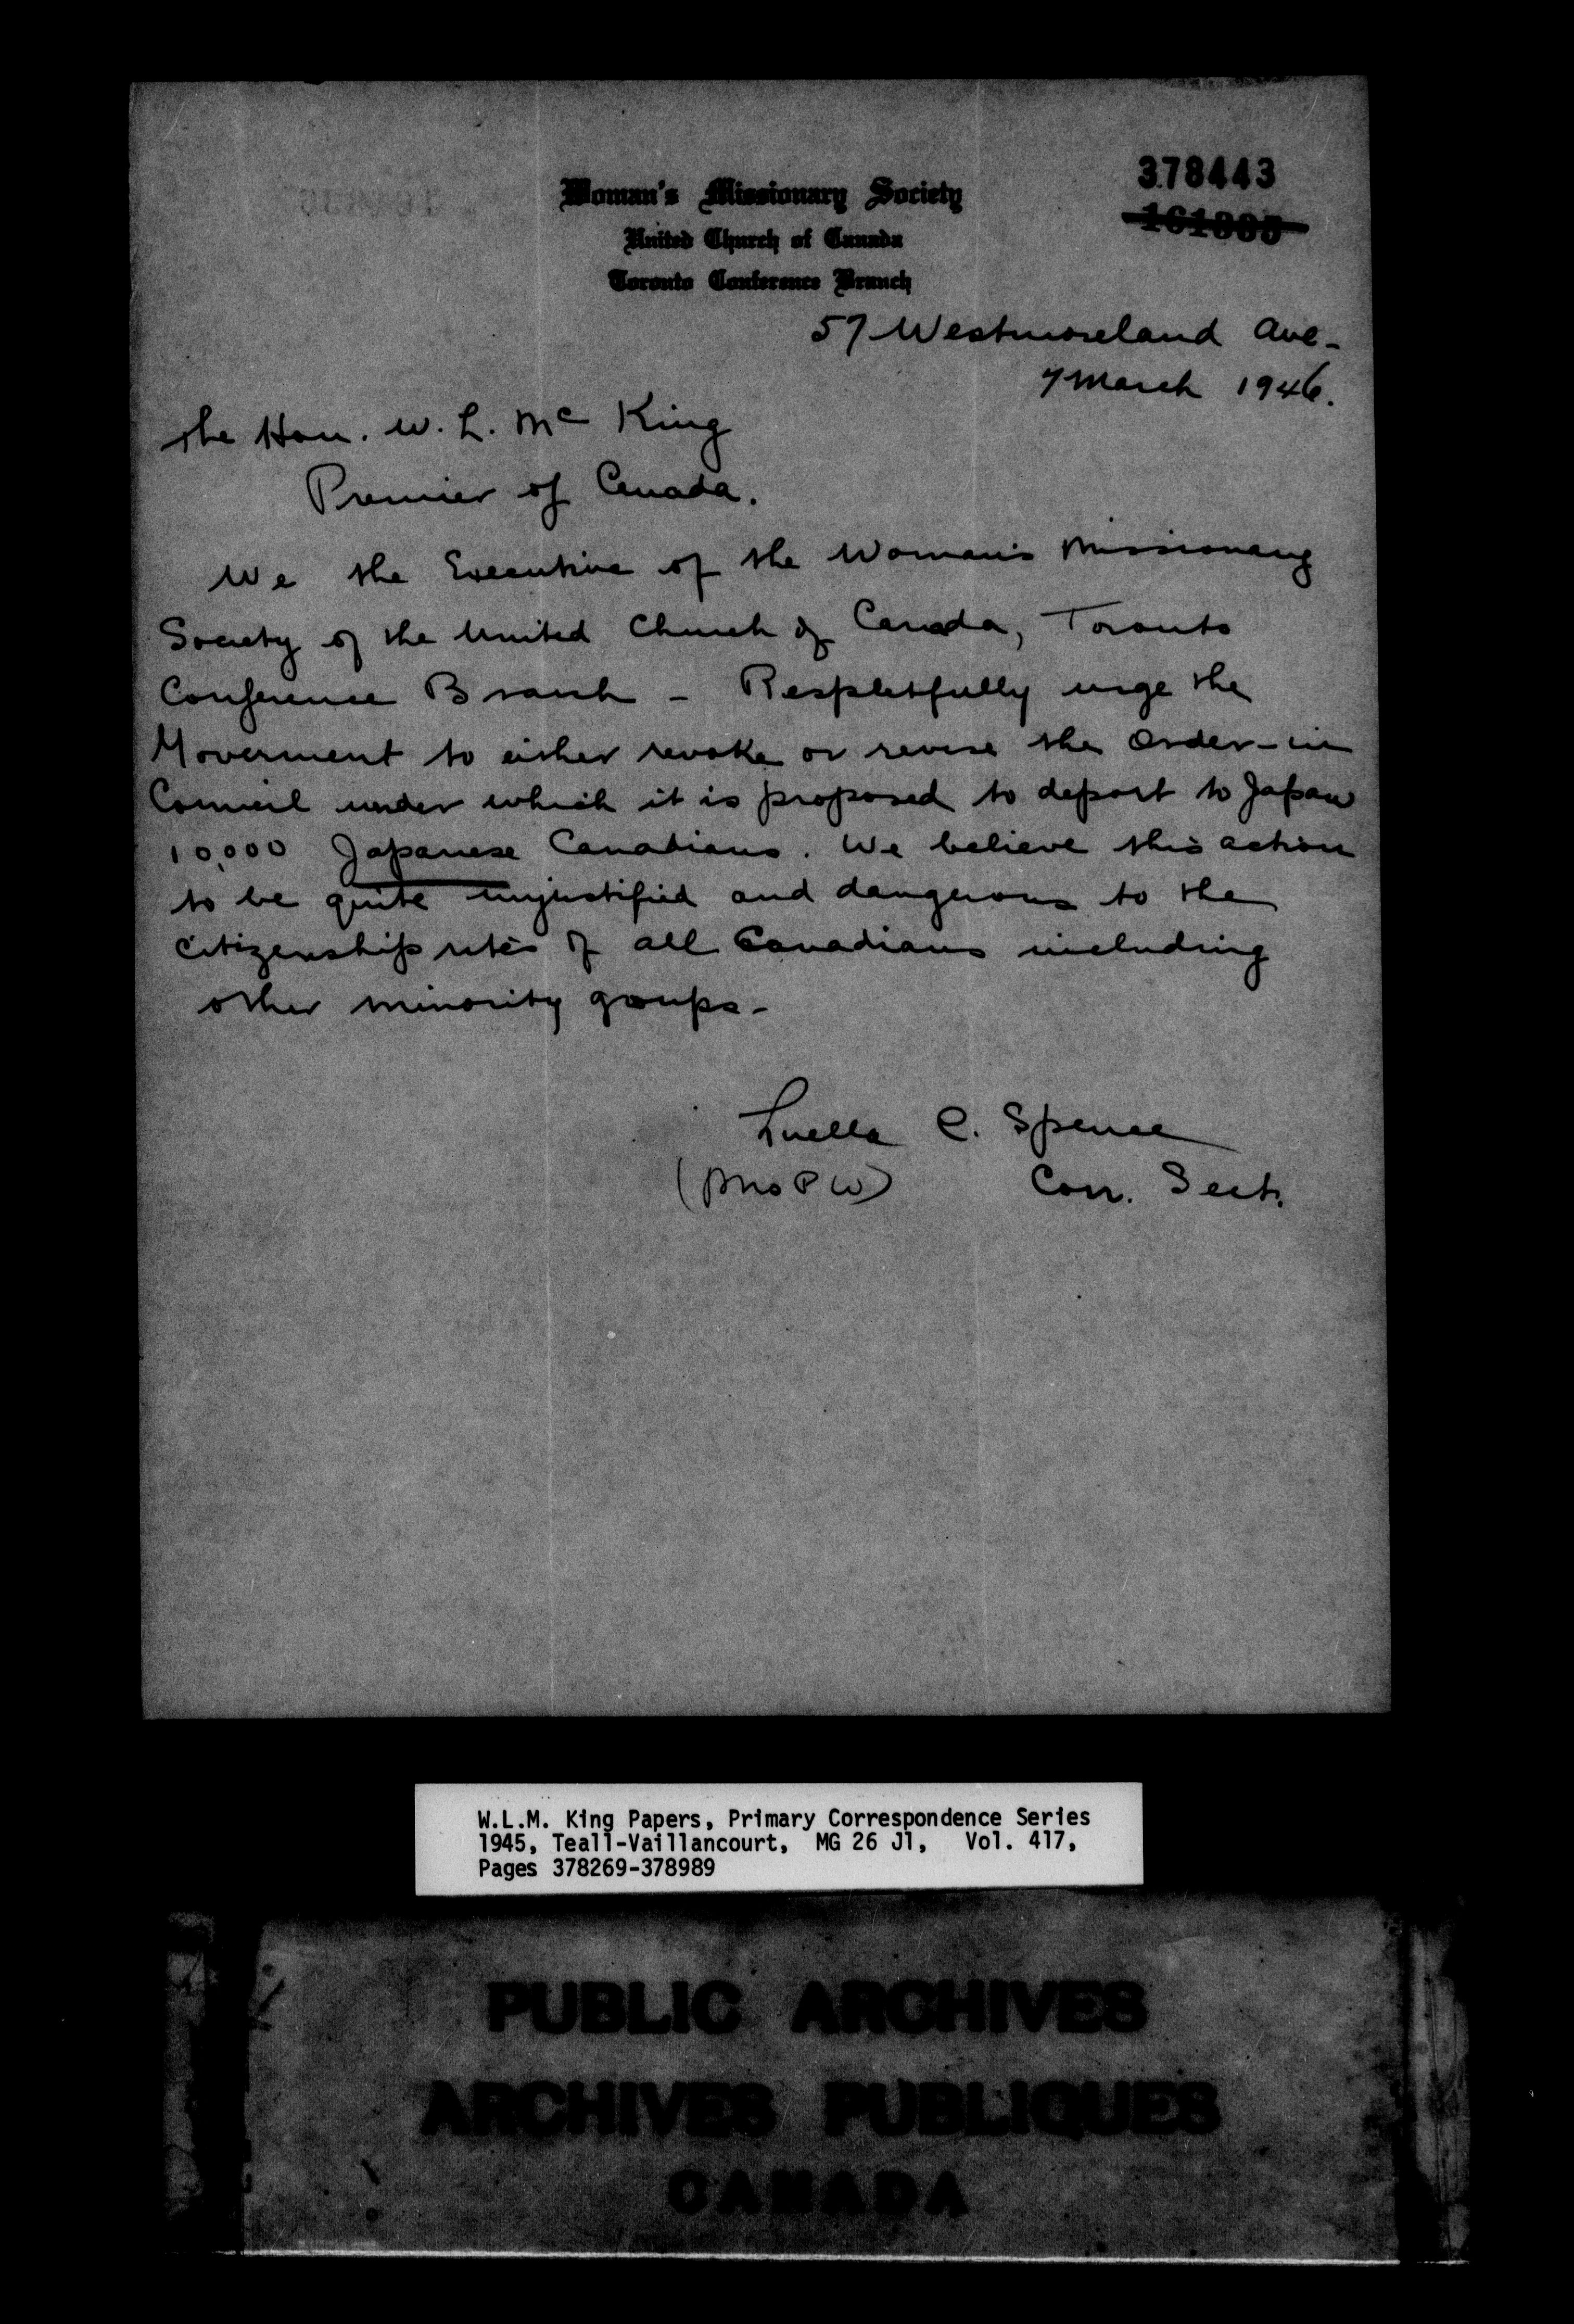 378443
Woman's Missionary Society
United Church of Canada
Toronto Conference Branch
57 Westmoreland Ave-
7 March 1946.
The Hon. W. L. Mc King
Premier of Canada.
We the Executive of the Woman's Missionary
Society of the United Church of Canada, Toronto
Conference Branch - Respectfully urge the
Government to either revoke or revise the Order-in
Council under which it is proposed to deport to Japan
10,000 Japanese Canadians. We believe this action
to be quite unjustified and dangerous to the
citizenship rites of all Canadians including
other minority groups-
Luella C. Spence
(Mrs P W) Corr. Sect.
W.L.M. King Papers, Primary Correspondence Series
1945, Teall-Vaillancourt, MG 26 J1, Vol. 417,
Pages 378269-378989
PUBLIC ARCHIVES
ARCHIVES PUBLIQUES
CANADA